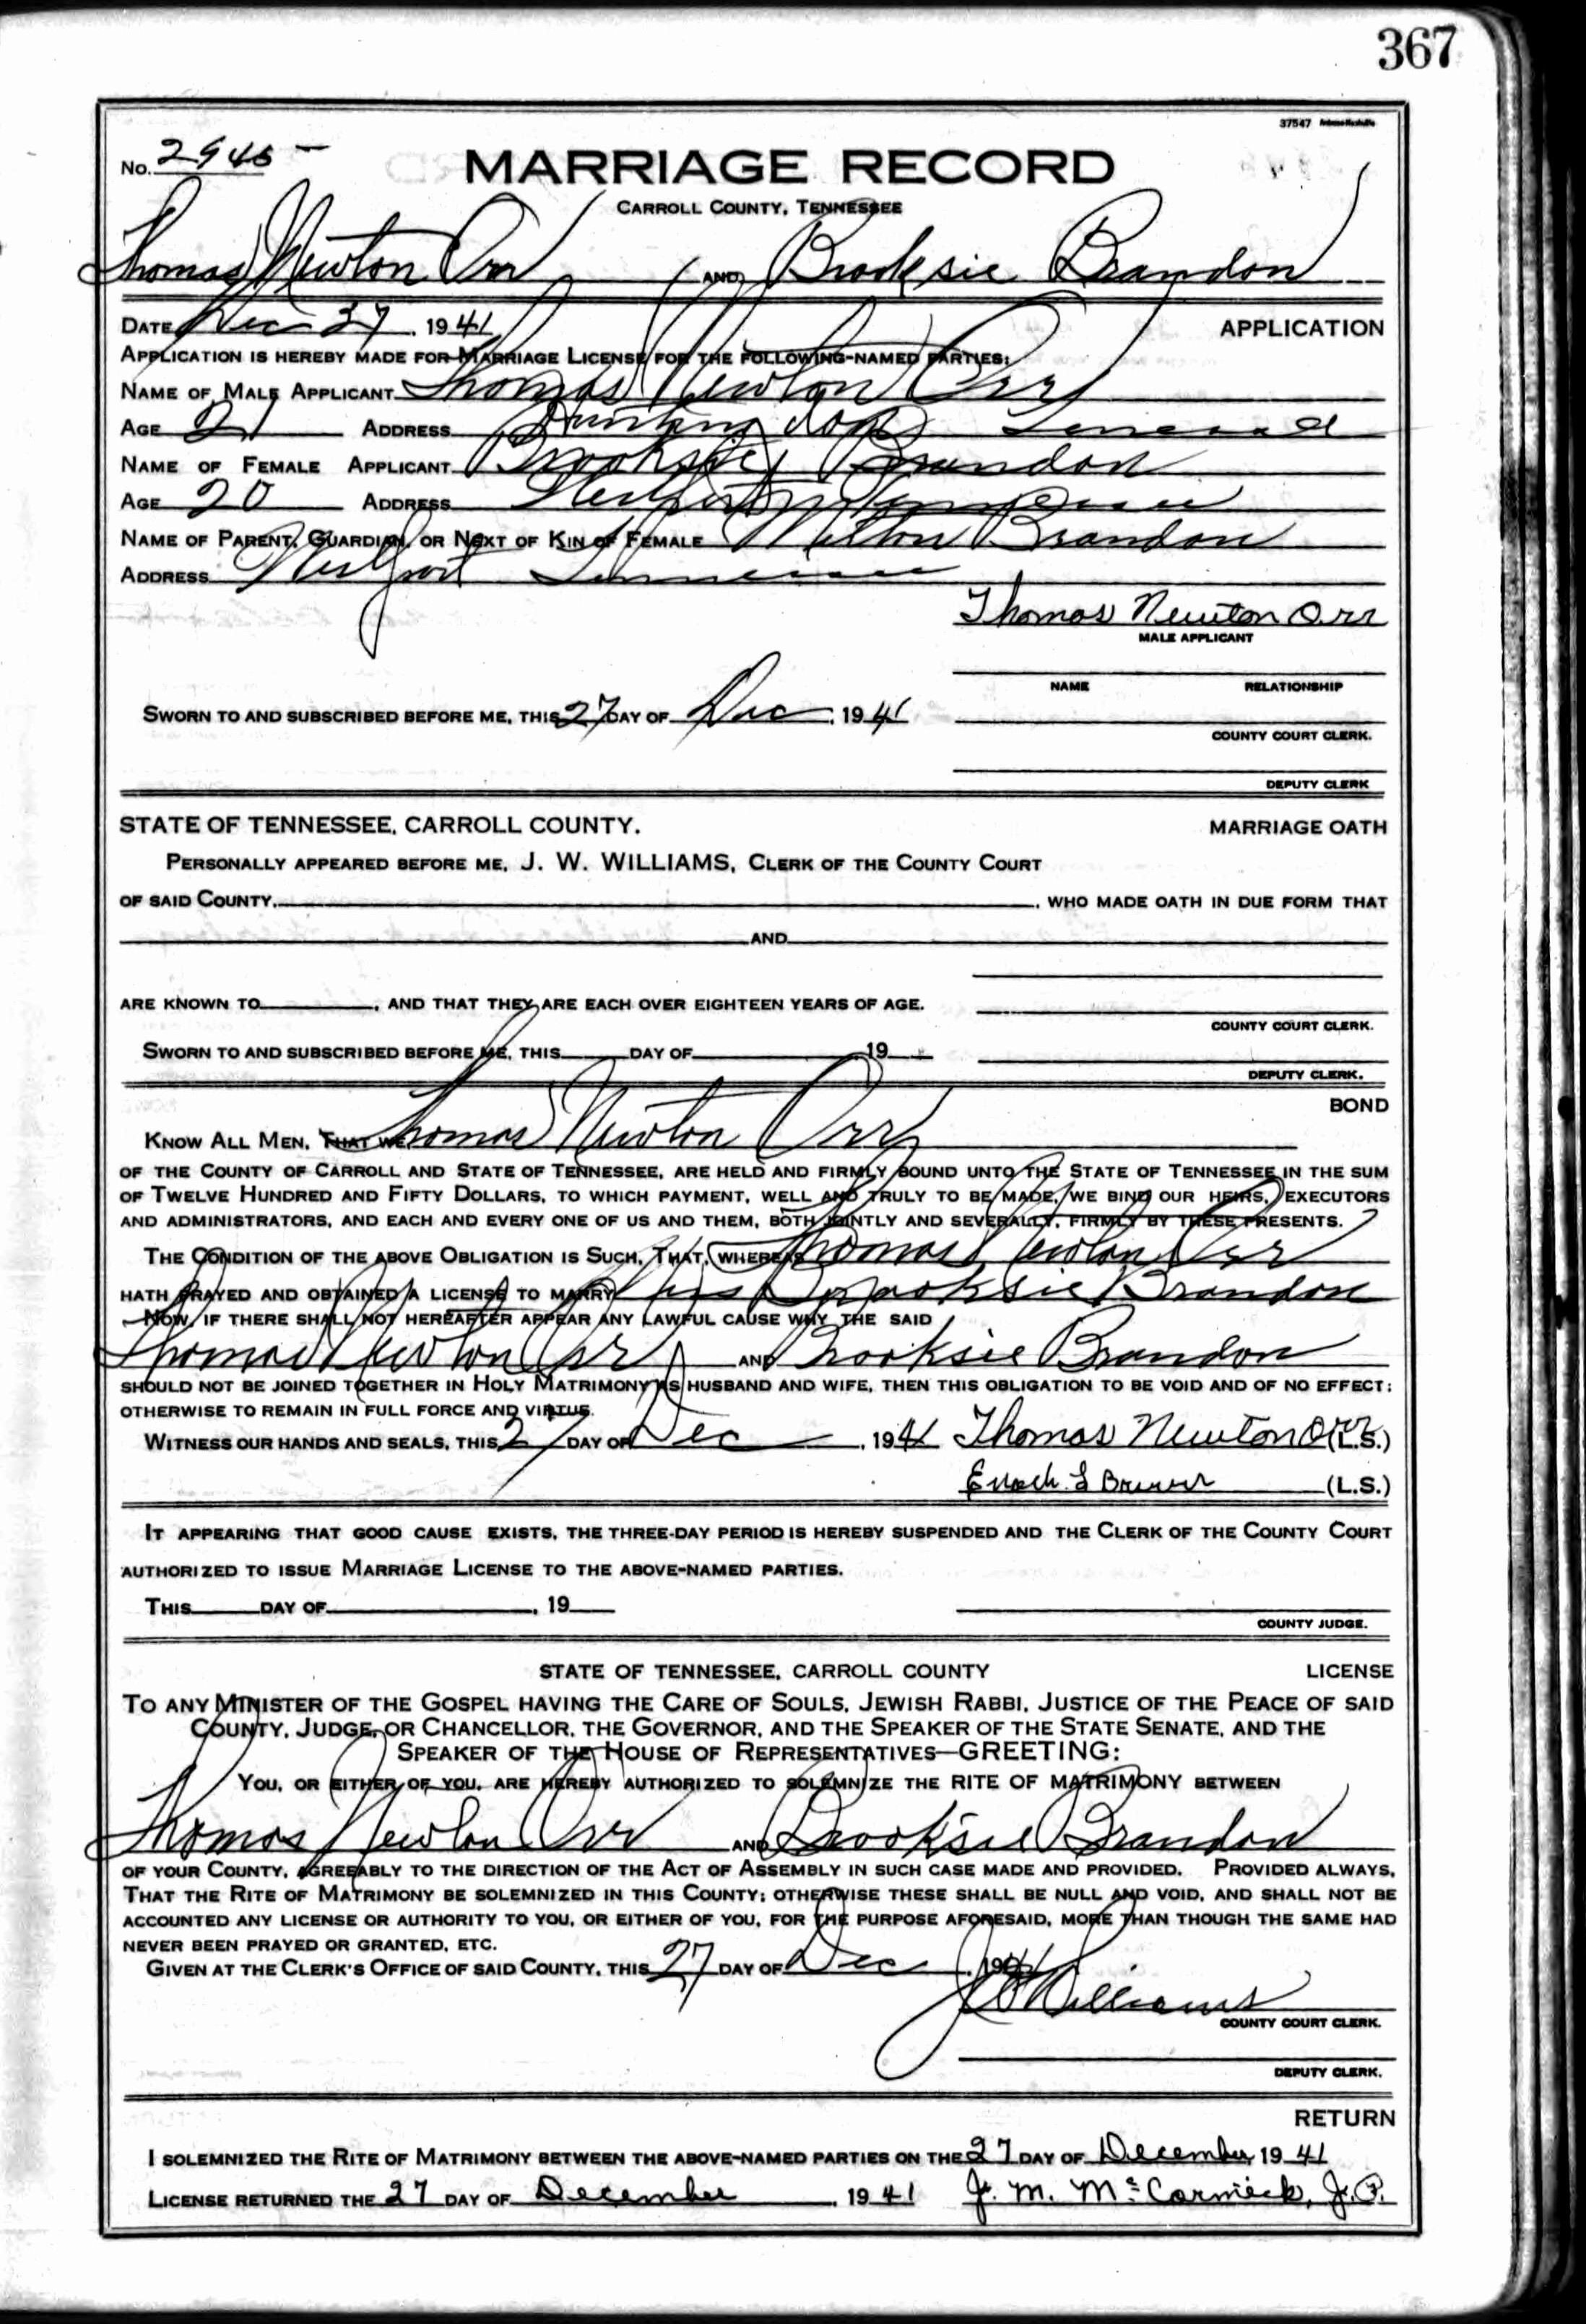 367
37547
No. 2945
MARRIAGE RECORD
CARROLL COUNTY, TENNESSEE
Thomas Newton Orr AND Brooksie Brandon
DATE Dec 27, 1941 APPLICATION
APPLICATION IS HEREBY MADE FOR MARRIAGE LICENSE FOR THE FOLLOWING-NAMED PARTIES:
NAME OF MALE APPLICANT Thomas Newton Orr
AGE 21 ADDRESS Huntingdon Tennessee
NAME OF FEMALE APPLICANT Brooksie Brandon
AGE 20 ADDRESS Westport Tennessee
NAME OF PARENT, GUARDIAN, OR NEXT OF KIN OF FEMALE Milton Brandon
ADDRESS Westport Tennessee
Thomas Newton Orr
MALE APPLICANT
NAME RELATIONSHIP
SWORN TO AND SUBSCRIBED BEFORE ME, THIS 27 DAY OF Dec, 1941
COUNTY COURT CLERK.
DEPUTY CLERK
STATE OF TENNESSEE, CARROLL COUNTY. MARRIAGE OATH
PERSONALLY APPEARED BEFORE ME, J. W. WILLIAMS, CLERK OF THE COUNTY COURT
OF SAID COUNTY, , WHO MADE OATH IN DUE FORM THAT
AND
ARE KNOWN TO , AND THAT THEY ARE EACH OVER EIGHTEEN YEARS OF AGE.
COUNTY COURT CLERK.
SWORN TO AND SUBSCRIBED BEFORE ME, THIS DAY OF 19
DEPUTY CLERK.
BOND
KNOW ALL MEN, THAT WE Thomas Newton Orr
OF THE COUNTY OF CARROLL AND STATE OF TENNESSEE, ARE HELD AND FIRMLY BOUND UNTO THE STATE OF TENNESSEE IN THE SUM
OF TWELVE HUNDRED AND FIFTY DOLLARS, TO WHICH PAYMENT, WELL AND TRULY TO BE MADE, WE BIND OUR HEIRS, EXECUTORS
AND ADMINISTRATORS, AND EACH AND EVERY ONE OF US AND THEM, BOTH JOINTLY AND SEVERALLY, FIRMLY BY THESE PRESENTS.
THE CONDITION OF THE ABOVE OBLIGATION IS SUCH, THAT, WHEREAS Thomas Newton Orr
HATH PRAYED AND OBTAINED A LICENSE TO MARRY Miss Brooksie Brandon
NOW, IF THERE SHALL NOT HEREAFTER APPEAR ANY LAWFUL CAUSE WHY THE SAID
Thomas Newton Orr AND Brooksie Brandon
SHOULD NOT BE JOINED TOGETHER IN HOLY MATRIMONY AS HUSBAND AND WIFE, THEN THIS OBLIGATION TO BE VOID AND OF NO EFFECT;
OTHERWISE TO REMAIN IN FULL FORCE AND VIRTUE.
WITNESS OUR HANDS AND SEALS, THIS 27 DAY OF Dec, 1941 Thomas Newton Orr (L.S.)
Enoch L Brewer (L.S.)
IT APPEARING THAT GOOD CAUSE EXISTS, THE THREE-DAY PERIOD IS HEREBY SUSPENDED AND THE CLERK OF THE COUNTY COURT
AUTHORIZED TO ISSUE MARRIAGE LICENSE TO THE ABOVE-NAMED PARTIES.
THIS DAY OF , 19
COUNTY JUDGE.
STATE OF TENNESSEE, CARROLL COUNTY LICENSE
TO ANY MINISTER OF THE GOSPEL HAVING THE CARE OF SOULS, JEWISH RABBI, JUSTICE OF THE PEACE OF SAID
COUNTY, JUDGE, OR CHANCELLOR, THE GOVERNOR, AND THE SPEAKER OF THE STATE SENATE, AND THE
SPEAKER OF THE HOUSE OF REPRESENTATIVES—GREETING:
YOU, OR EITHER OF YOU, ARE HEREBY AUTHORIZED TO SOLEMNIZE THE RITE OF MATRIMONY BETWEEN
Thomas Newton Orr AND Brooksie Brandon
OF YOUR COUNTY, AGREEABLY TO THE DIRECTION OF THE ACT OF ASSEMBLY IN SUCH CASE MADE AND PROVIDED. PROVIDED ALWAYS,
THAT THE RITE OF MATRIMONY BE SOLEMNIZED IN THIS COUNTY; OTHERWISE THESE SHALL BE NULL AND VOID, AND SHALL NOT BE
ACCOUNTED ANY LICENSE OR AUTHORITY TO YOU, OR EITHER OF YOU, FOR THE PURPOSE AFORESAID, MORE THAN THOUGH THE SAME HAD
NEVER BEEN PRAYED OR GRANTED, ETC.
GIVEN AT THE CLERK'S OFFICE OF SAID COUNTY, THIS 27 DAY OF Dec, 1941
J W Williams
COUNTY COURT CLERK.
DEPUTY CLERK.
RETURN
I SOLEMNIZED THE RITE OF MATRIMONY BETWEEN THE ABOVE-NAMED PARTIES ON THE 27 DAY OF December 1941
LICENSE RETURNED THE 27 DAY OF December, 1941 J. M. McCormick, J.P.